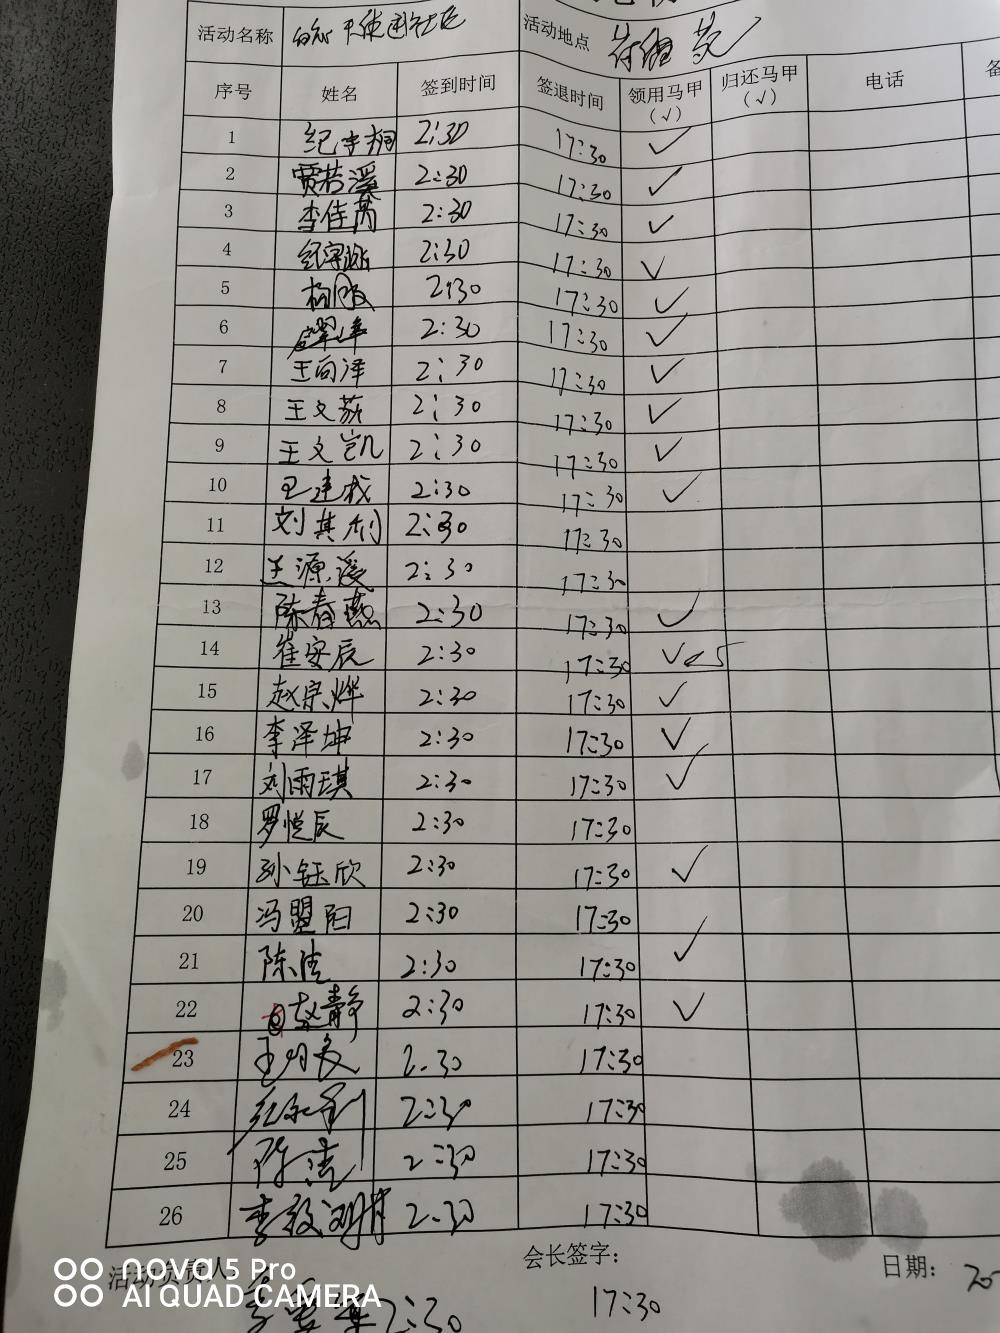 活动名称 活动地点
序号 姓名 签到时间 签退时间 领用马甲(√) 归还马甲(√) 电话
1 纪宇桐 2:30 17:30 √
2 贾若溪 2:30 17:30 √
3 李佳芮 2:30 17:30 √
4 2:30 17:30 √
5 2:30 17:30 √
6 2:30 17:30 √
7 王向泽 2:30 17:30 √
8 王文荻 2:30 17:30 √
9 王文凯 2:30 17:30 √
10 2:30 17:30 √
11 刘其 2:30 17:30
12 源 2:30 17:30
13 陈春燕 2:30 17:30 √
14 崔安辰 2:30 17:30 √
15 赵宗烨 2:30 17:30 √
16 李泽坤 2:30 17:30 √
17 刘雨琪 2:30 17:30 √
18 罗悦辰 2:30 17:30
19 孙钰欣 2:30 17:30 √
20 冯盟阳 2:30 17:30
21 陈洁 2:30 17:30 √
22 赵静 2:30 17:30 √
23 2:30 17:30
24 2:30 17:30
25 2:30 17:30
26 李 2:30 17:30
活动负责人 会长签字： 日期：
2:30 17:30
nova 5 Pro
AI QUAD CAMERA